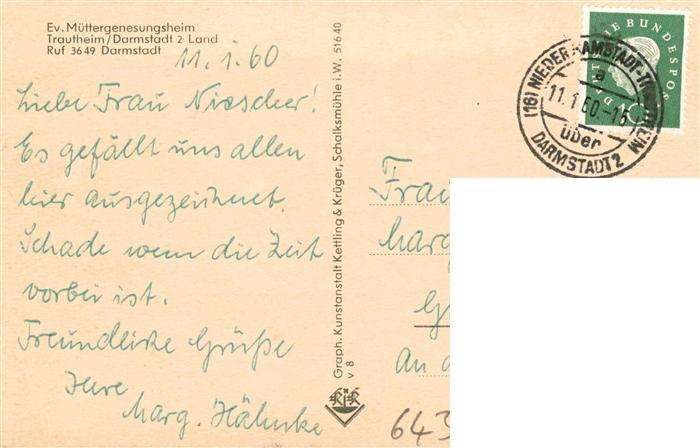 Ev. Müttergenesungsheim
Trautheim/Darmstadt 2 Land
Ruf 3649 Darmstadt
11.1.60
Liebe Frau Niescher!
Es gefällt uns allen
hier ausgezeichnet.
Schade wenn die Zeit
vorbei ist.
Freundliche Grüße
Ihre
Marg. Hähnke
Graph. Kunstanstalt Kettling & Krüger, Schalksmühle i.W. 51640
v 8
K R
(16) NIEDER-RAMSTADT-TRAUTHEIM
a
11.1.60-15
über
DARMSTADT 2
DEUTSCHE BUNDESPOST
10
Frau
Marg
G
An d
643